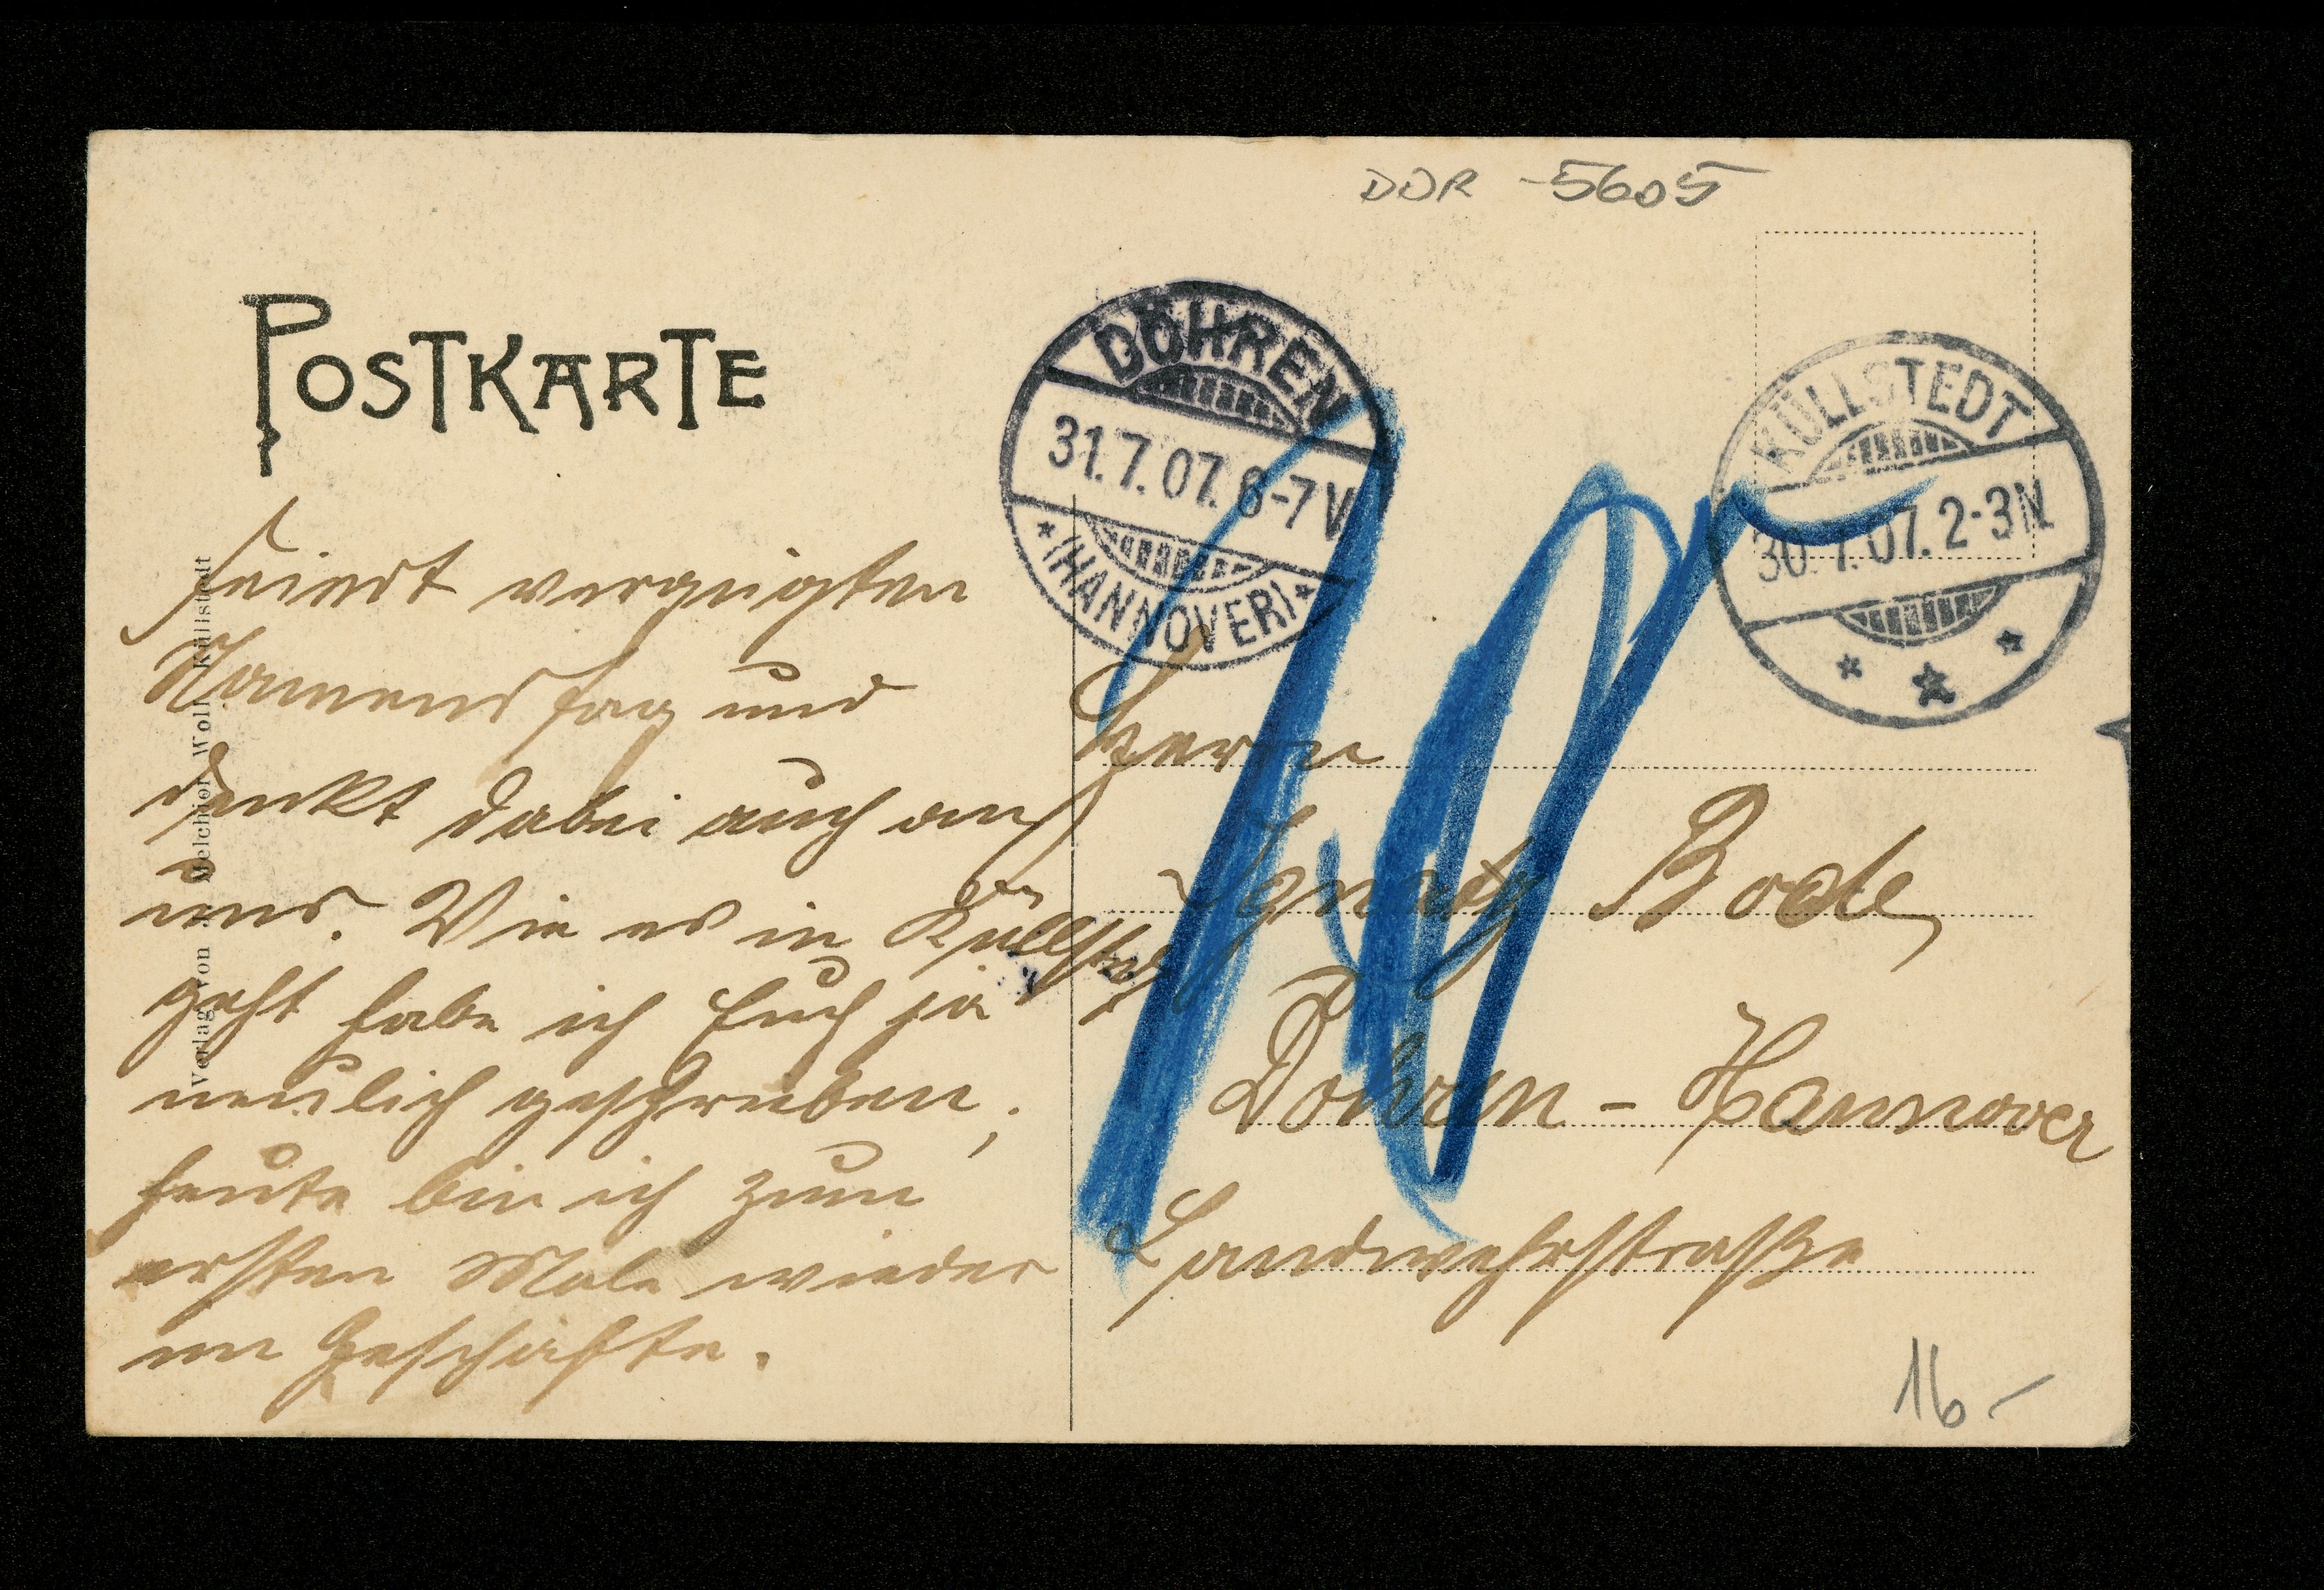 DDR - 5605
POSTKARTE
DÖHREN
31.7.07. 6-7V
*(HANNOVER)*
KÜLLSTEDT
30.7.07. 2-3N
Verlag von Melchior Woll Küllstedt
feiert vergnügten
Namenstag und
denkt dabei auch an
uns. Wie es in Küllstedt
geht habe ich Euch ja
neulich geschrieben;
heute bin ich zum
ersten Male wieder
im Geschäfte.
Herrn
Ignatz Bode,
Döhren - Hannover
Landwehrstraße
10
16 -